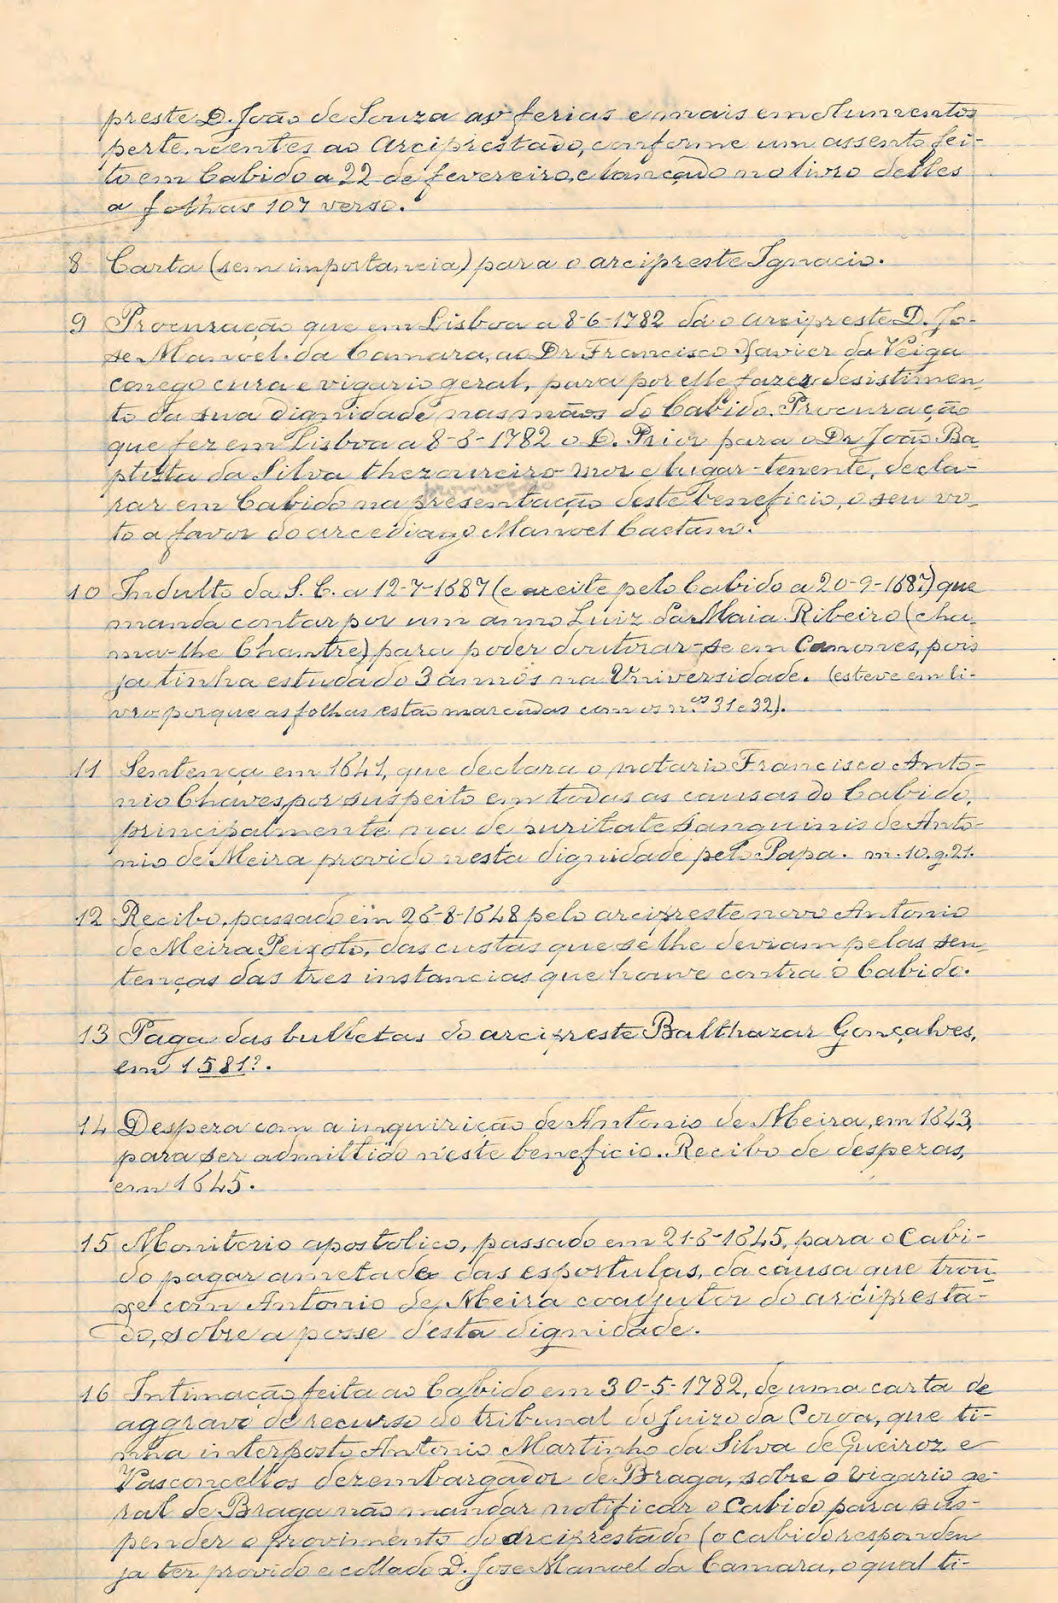 preste D. João de Souza as ferias e mais emolumentos
pertencentes ao arciprestado, conforme um assento fei-
to em Cabido a 22 de fevereiro, e lançado no livro delles
a folhas 107 verso.
8 Carta (sem importancia) para o arcipreste Ignacio.
9 Procuração que em Lisboa a 8-6-1782 dá o arcipreste D. Jo-
se Manoel da Camara, ao Dr Francisco Xavier da Veiga
conego cura e vigario geral, para por elle fazer desistimen-
to da sua dignidade nas mãos do Cabido. Procuração
que fez em Lisboa a 8-6-1782 o D. Prior para o Dr João Ba-
ptista da Silva thezoureiro-mor e lugar-tenente, decla-
rar em Cabido na presentação deste beneficio, o seu vo-
to a favor do arcediago Manoel Caetano.
10 Indulto da S. C. a 12-7-1687 (e aceite pelo Cabido a 20-9-1687) que
manda contar por um anno Luiz da Maia Ribeiro (cha-
ma-lhe Chantre) para poder doutorar-se em Canones, pois
ja tinha estudado 3 annos na Universidade. (esteve em li-
vro porque as folhas estão marcadas com os n.os 31 e 32).
11 Sentença em 1641, que declara o notario Francisco Anto-
nio Chaves, por suspeito em todas as causas do Cabido,
principalmente na de puritate sanguinis de Anto-
nio de Meira provido nesta dignidade pelo Papa. m. 10. g. 21.
12 Recibo, passado em 26-8-1648 pelo arcipreste novo Antonio
de Meira Peixoto, das custas que se lhe deviam pelas sen-
tenças das tres instancias que houve contra o Cabido.
13 Paga das bulletas do arcipreste Balthazar Gonçalves,
em 1581?.
14 Despeza com a inquirição de Antonio de Meira, em 1643,
para ser admittido n'este beneficio. Recibo de despezas,
em 1645.
15 Monitorio apostolico, passado em 21-6-1645, para o Cabi-
do pagar ametade das esportulas, da causa que trou-
xe com Antonio de Meira coadjutor do arcipresta-
do, sobre a posse d'esta dignidade.
16 Intimação feita ao Cabido em 30-5-1782, de uma carta de
aggravo de recurso do tribunal do Juizo da Coroa, que ti-
nha interposto Antonio Martinho da Silva de Queiroz e
Vasconcellos dezembargador de Braga, sobre o vigario ge-
ral de Braga não mandar notificar o Cabido para sus-
pender o provimento do arciprestado (o cabido respondeu
ja ter provido e collado D. Jose Manoel da Camara, o qual ti-